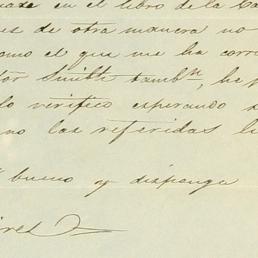 en el libro de la
es de otra manera no
omo el que me ha
tor Smith tambn, he
lo verifico esperando
no las referidas
bueno y disponga